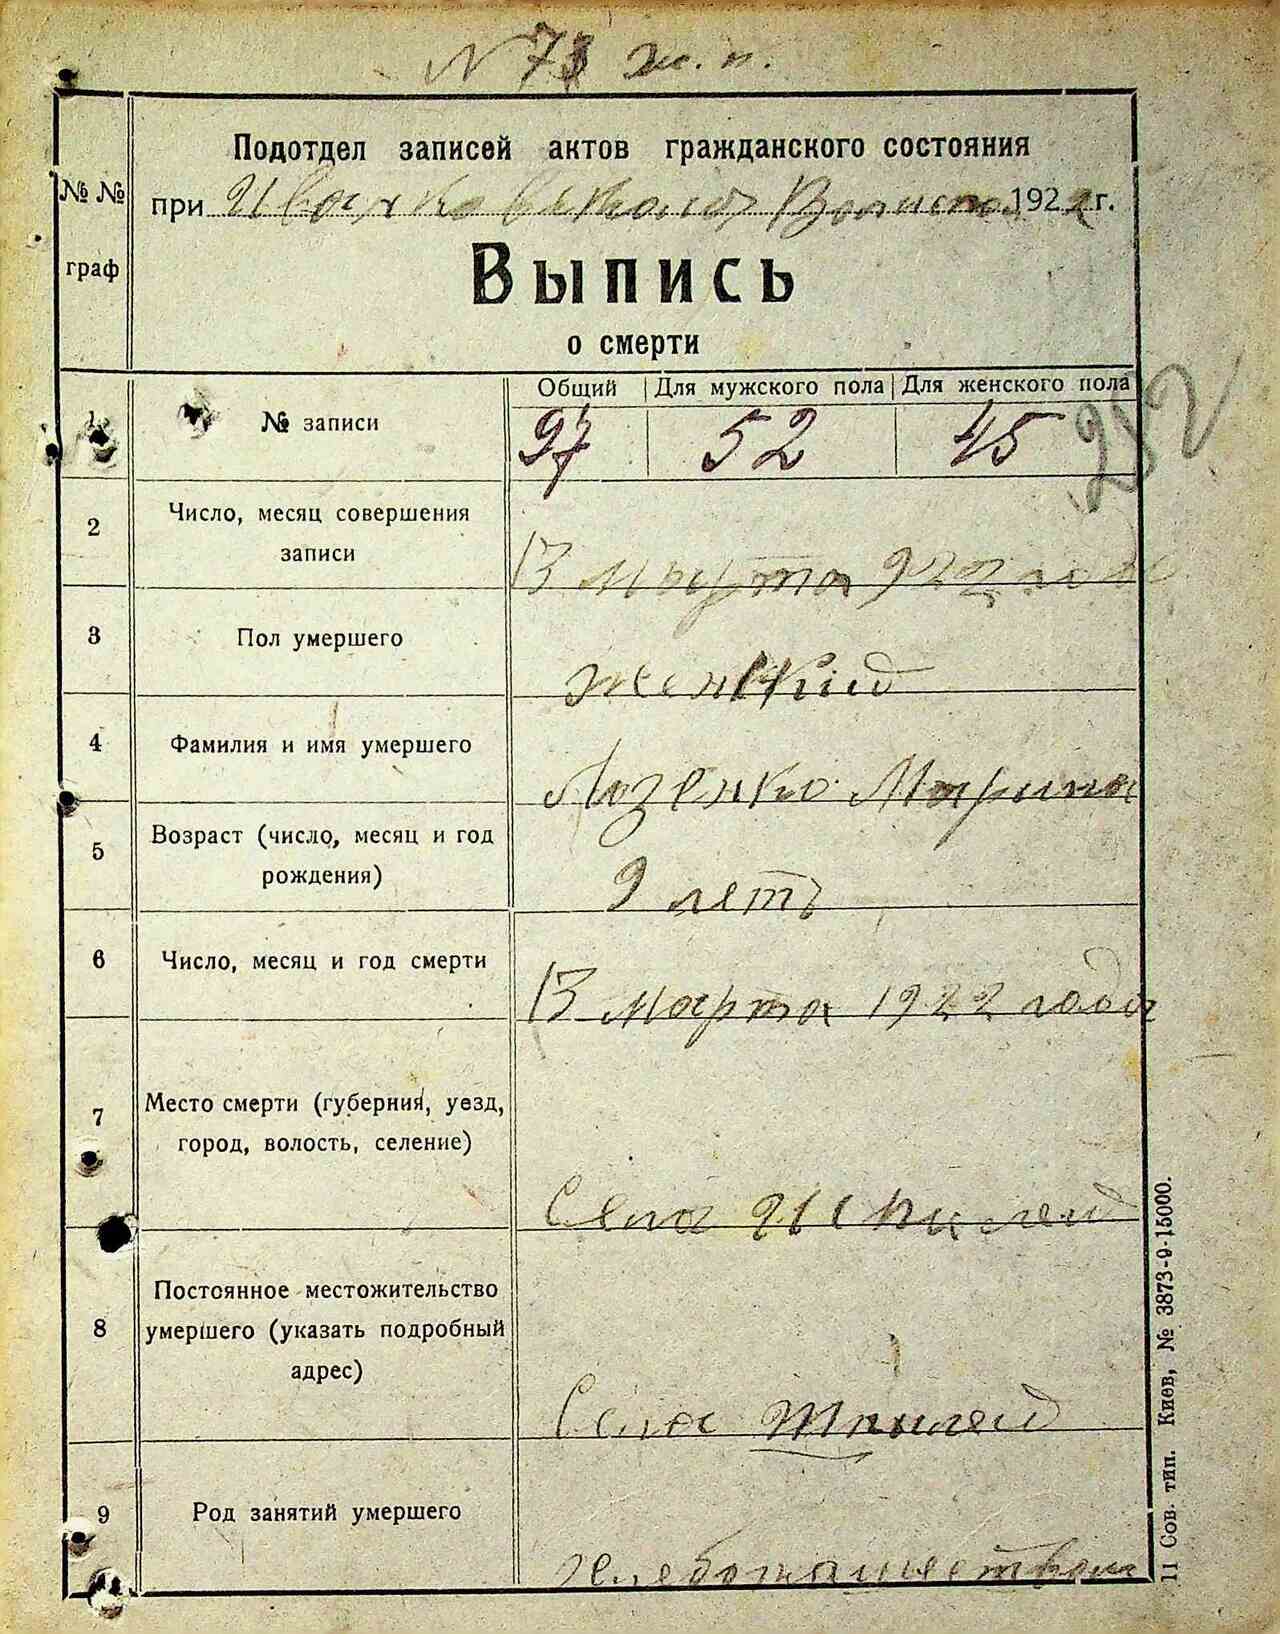 N 73 ж. п.
Подотдел записей актов гражданского состояния
№ № при Ивахновской Волисполк. 1922 г.
граф Выпись
о смерти
Общий Для мужского пола Для женского пола
1 № записи 97 52 45 252
2 Число, месяц совершения
записи 13 Марта 922 года
3 Пол умершего женский
4 Фамилия и имя умершего Лазенко Марина
5 Возраст (число, месяц и год
рождения) 9 летъ
6 Число, месяц и год смерти 13 марта 1922 года
7 Место смерти (губерния, уезд,
город, волость, селение) Села
8 Постоянное местожительство
умершего (указать подробный
адрес) Села
9 Род занятий умершего хлебопашеством
11 Сов. тип. Киев, № 3873-9-15000.